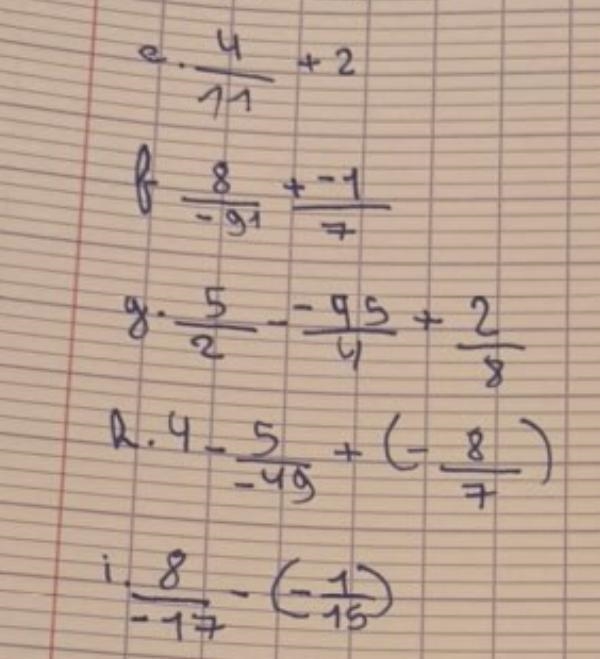 e. 4/11 + 2
f 8/-91 + -1/7
g. 5/2 - -95/4 + 2/8
h. 4 - 5/-49 + (- 8/7)
i. 8/-17 - (- 1/15)